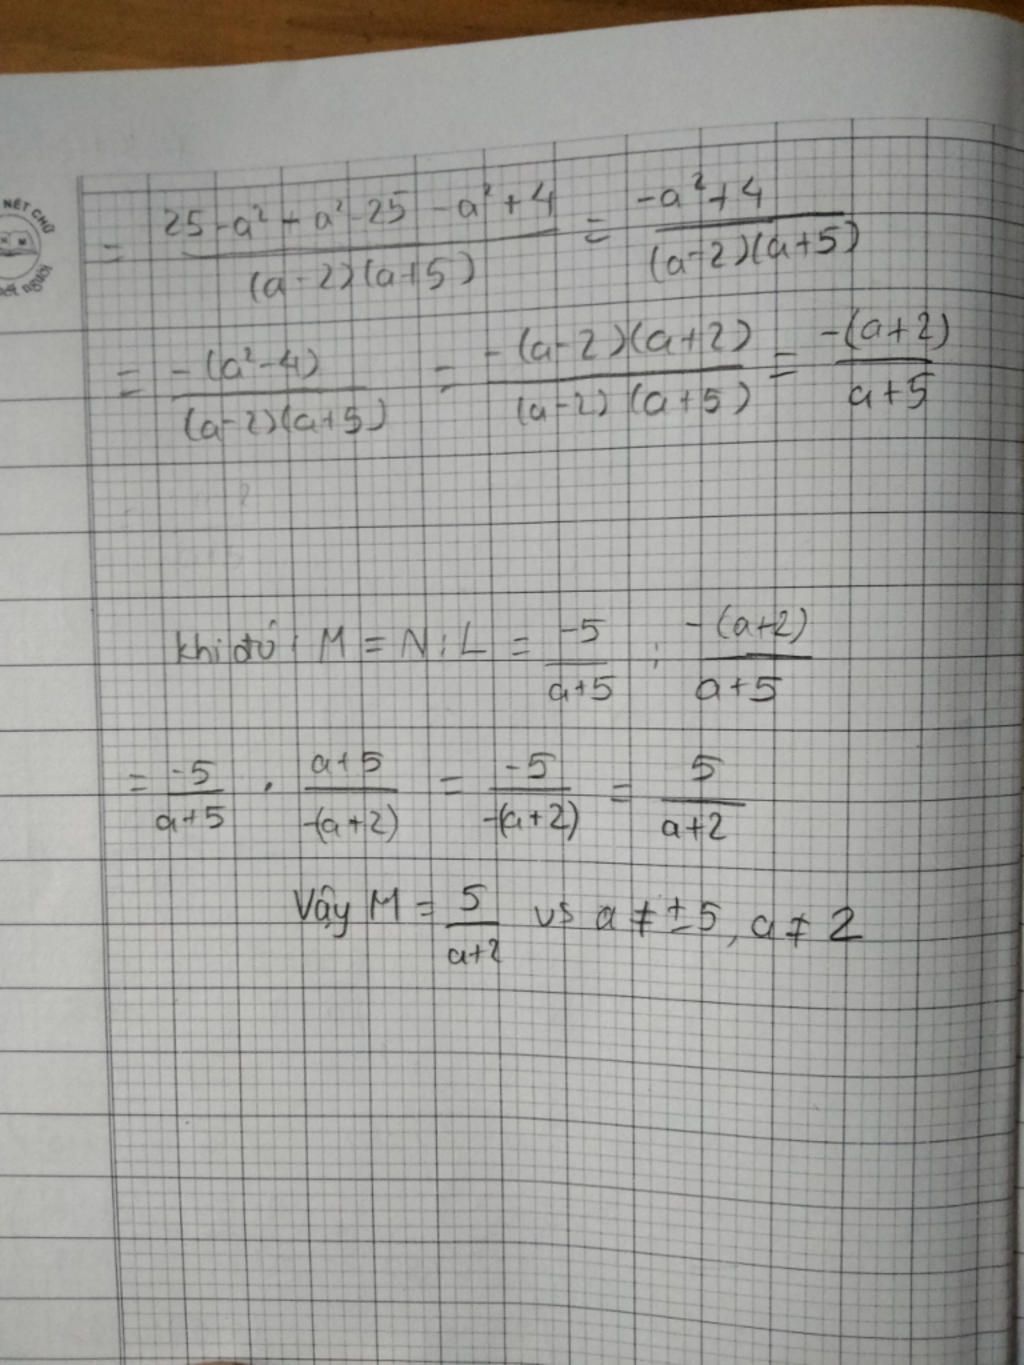 NÉT CHỮ
nết người
= \frac{25-a^2+a^2-25-a^2+4}{(a-2)(a+5)} = \frac{-a^2+4}{(a-2)(a+5)}
= \frac{-(a^2-4)}{(a-2)(a+5)} = \frac{-(a-2)(a+2)}{(a-2)(a+5)} = \frac{-(a+2)}{a+5}
khi đó: M = N : L = \frac{-5}{a+5} : \frac{-(a+2)}{a+5}
= \frac{-5}{a+5} . \frac{a+5}{-(a+2)} = \frac{-5}{-(a+2)} = \frac{5}{a+2}
Vậy M = \frac{5}{a+2} vs a ≠ ±5, a ≠ 2